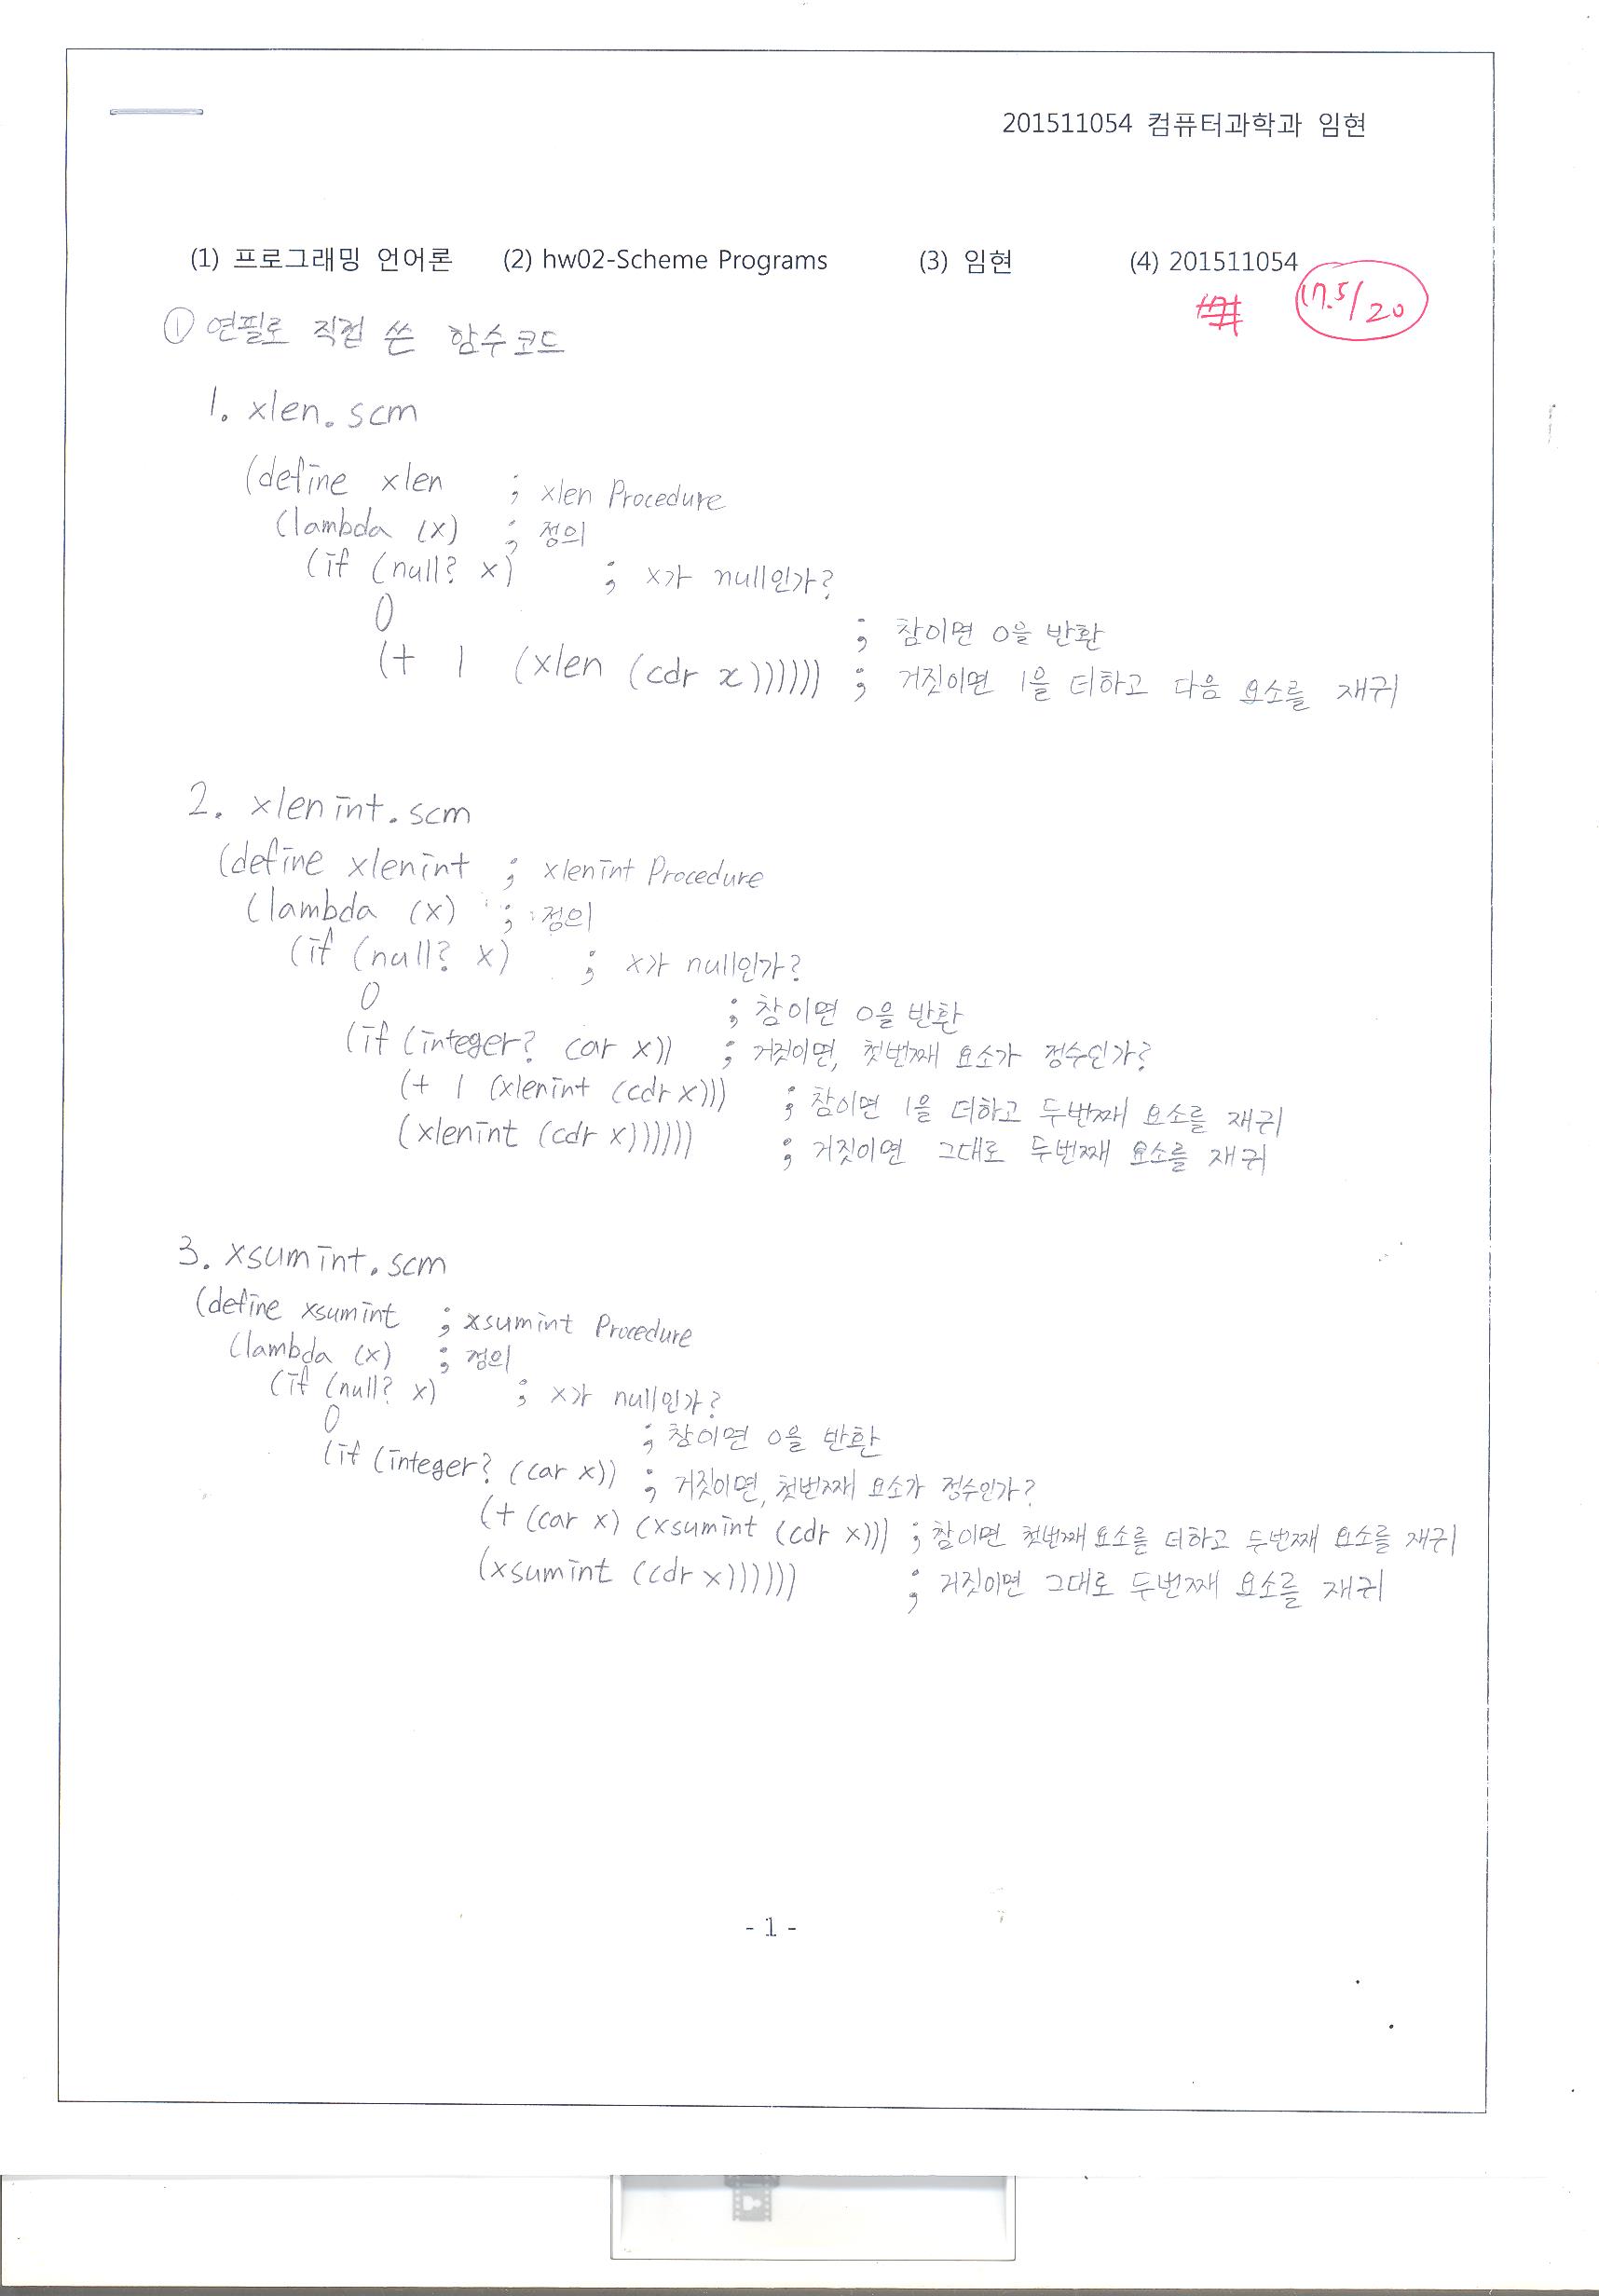 201511054 컴퓨터과학과 임현
(1) 프로그래밍 언어론 (2) hw02-Scheme Programs (3) 임현 (4) 201511054
17.5/20
① 연필로 직접 쓴 함수코드
1. xlen.scm
(define xlen ; xlen Procedure
(lambda (x) ; 정의
(if (null? x) ; x가 null인가?
0 ; 참이면 0을 반환
(+ 1 (xlen (cdr x)))))) ; 거짓이면 1을 더하고 다음 요소를 재귀
2. xlenint.scm
(define xlenint ; xlenint Procedure
(lambda (x) ; 정의
(if (null? x) ; x가 null인가?
0 ; 참이면 0을 반환
(if (integer? car x)) ; 거짓이면, 첫번째 요소가 정수인가?
(+ 1 (xlenint (cdr x))) ; 참이면 1을 더하고 두번째 요소를 재귀
(xlenint (cdr x)))))) ; 거짓이면 그대로 두번째 요소를 재귀
3. xsumint.scm
(define xsumint ; xsumint Procedure
(lambda (x) ; 정의
(if (null? x) ; x가 null인가?
0 ; 참이면 0을 반환
(if (integer? (car x)) ; 거짓이면, 첫번째 요소가 정수인가?
(+ (car x) (xsumint (cdr x))) ; 참이면 첫번째 요소를 더하고 두번째 요소를 재귀
(xsumint (cdr x)))))) ; 거짓이면 그대로 두번째 요소를 재귀
- 1 -